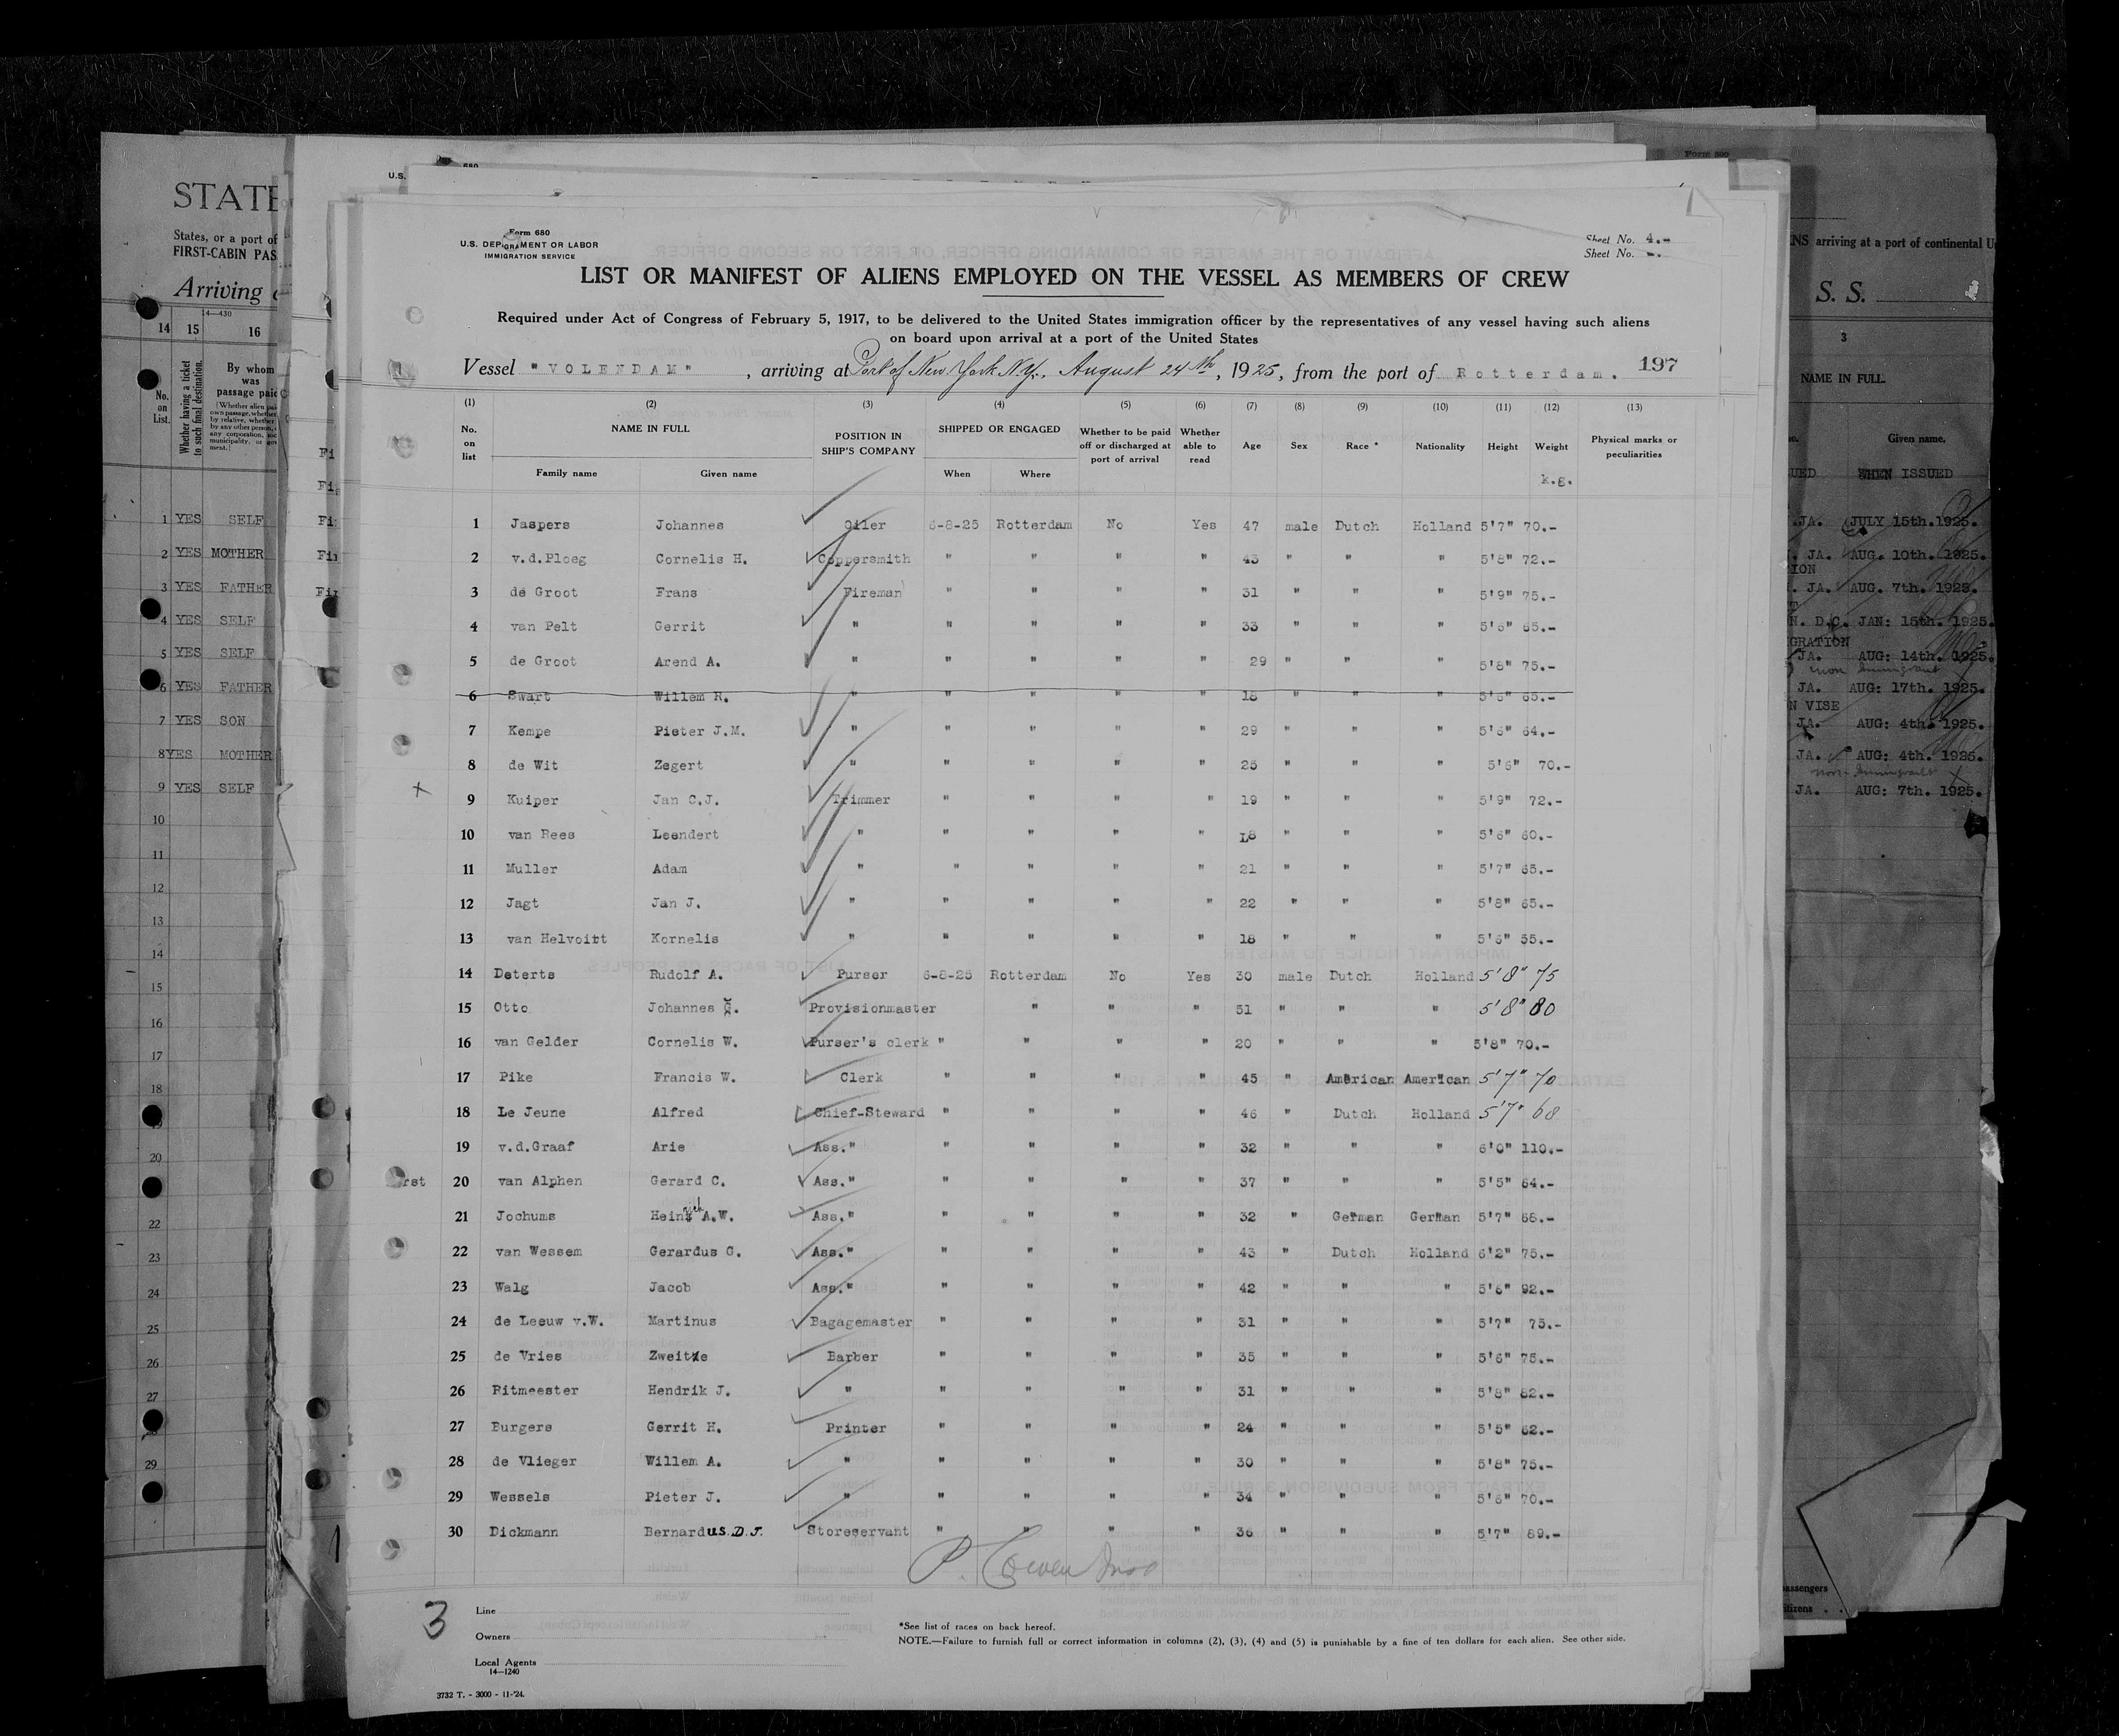 Form 680
U.S. DEPARTMENT OR LABOR
IMMIGRATION SERVICE
Sheet No. 4.-
Sheet No.
LIST OR MANIFEST OF ALIENS EMPLOYED ON THE VESSEL AS MEMBERS OF CREW
Required under Act of Congress of February 5, 1917, to be delivered to the United States immigration officer by the representatives of any vessel having such aliens
on board upon arrival at a port of the United States
Vessel "VOLENDAM", arriving at Port of New York N.Y., August 24th, 1925, from the port of Rotterdam. 197
(1) (2) (3) (4) (5) (6) (7) (8) (9) (10) (11) (12) (13)
No. on list NAME IN FULL POSITION IN SHIP'S COMPANY SHIPPED OR ENGAGED Whether to be paid off or discharged at port of arrival Whether able to read Age Sex Race * Nationality Height Weight Physical marks or peculiarities
Family name Given name When Where k.g.
1 Jaspers Johannes Oiler 6-8-25 Rotterdam No Yes 47 male Dutch Holland 5'7" 70.-
2 v.d.Ploeg Cornelis H. Coppersmith " " " " 43 " " " 5'8" 72.-
3 de Groot Frans Fireman " " " " 31 " " " 5'9" 75.-
4 van Pelt Gerrit " " " " " 33 " " " 5'6" 65.-
5 de Groot Arend A. " " " " " 29 " " " 5'8" 75.-
6 Swart Willem R. " " " " " 18 " " " 5'6" 65.-
7 Kempe Pieter J.M. " " " " " 29 " " " 5'6" 64.-
8 de Wit Zegert " " " " " 25 " " " 5'6" 70.-
9 Kuiper Jan C.J. Trimmer " " " " 19 " " " 5'9" 72.-
10 van Rees Leendert " " " " " 18 " " " 5'6" 60.-
11 Muller Adam " " " " " 21 " " " 5'7" 65.-
12 Jagt Jan J. " " " " " 22 " " " 5'8" 65.-
13 van Helvoirt Kornelis " " " " " 18 " " " 5'6" 55.-
14 Deterts Rudolf A. Purser 6-8-25 Rotterdam No Yes 30 male Dutch Holland 5'8" 75
15 Otto Johannes G. Provisionmaster " " " 51 " " " 5'8" 80
16 van Gelder Cornelis W. Purser's clerk " " " " 20 " " " 5'8" 70.-
17 Pike Francis W. Clerk " " " " 45 " American American 5'7" 70
18 Le Jeune Alfred Chief-Steward " " " " 46 " Dutch Holland 5'7" 68
19 v.d.Graaf Arie Ass." " " " " 32 " " " 6'0" 110.-
20 van Alphen Gerard C. Ass." " " " " 37 " " " 5'5" 64.-
21 Jochums Heinrich A.W. Ass." " " " " 32 " German German 5'7" 66.-
22 van Wessem Gerardus G. Ass." " " " " 43 " Dutch Holland 6'2" 75.-
23 Walg Jacob Ass." " " " " 42 " " " 5'6" 92.-
24 de Leeuw v.W. Martinus Bagagemaster " " " " 31 " " " 5'7" 75.-
25 de Vries Zweitze Barber " " " " 35 " " " 5'6" 75.-
26 Ritmeester Hendrik J. " " " " " 31 " " " 5'8" 82.-
27 Burgers Gerrit H. Printer " " " " 24 " " " 5'5" 62.-
28 de Vlieger Willem A. " " " " " 30 " " " 5'8" 75.-
29 Wessels Pieter J. " " " " " 34 " " " 5'6" 70.-
30 Dickmann Bernardus D.J. Storeservant " " " " 36 " " " 5'7" 89.-
3
Line
Owners
Local Agents
14—1240
*See list of races on back hereof.
NOTE.—Failure to furnish full or correct information in columns (2), (3), (4) and (5) is punishable by a fine of ten dollars for each alien. See other side.
3732 T. - 3000 - 11-'24.
STATE
States, or a port of
FIRST-CABIN PAS
Arriving
14—430
14 15 16
No. on List.
Whether having a ticket to such final destination.
By whom was passage paid
1 YES SELF
2 YES MOTHER
3 YES FATHER
4 YES SELF
5 YES SELF
6 YES FATHER
7 YES SON
8 YES MOTHER
9 YES SELF
10
11
12
13
14
15
16
17
18
19
20
22
23
24
25
26
27
29
U.S.
680
Form 500
arriving at a port of continental
S. S.
3
NAME IN FULL
Given name.
WHEN ISSUED
JA. JULY 15th.1925.
JA. AUG. 10th. 1925.
JA. AUG. 7th. 1925.
N. D.C. JAN: 15th. 1925.
JA. AUG: 14th. 1925.
non immigrant
JA. AUG: 17th. 1925.
N VISE
JA. AUG: 4th. 1925.
JA. AUG: 4th. 1925.
non immigrant
JA. AUG: 7th. 1925.